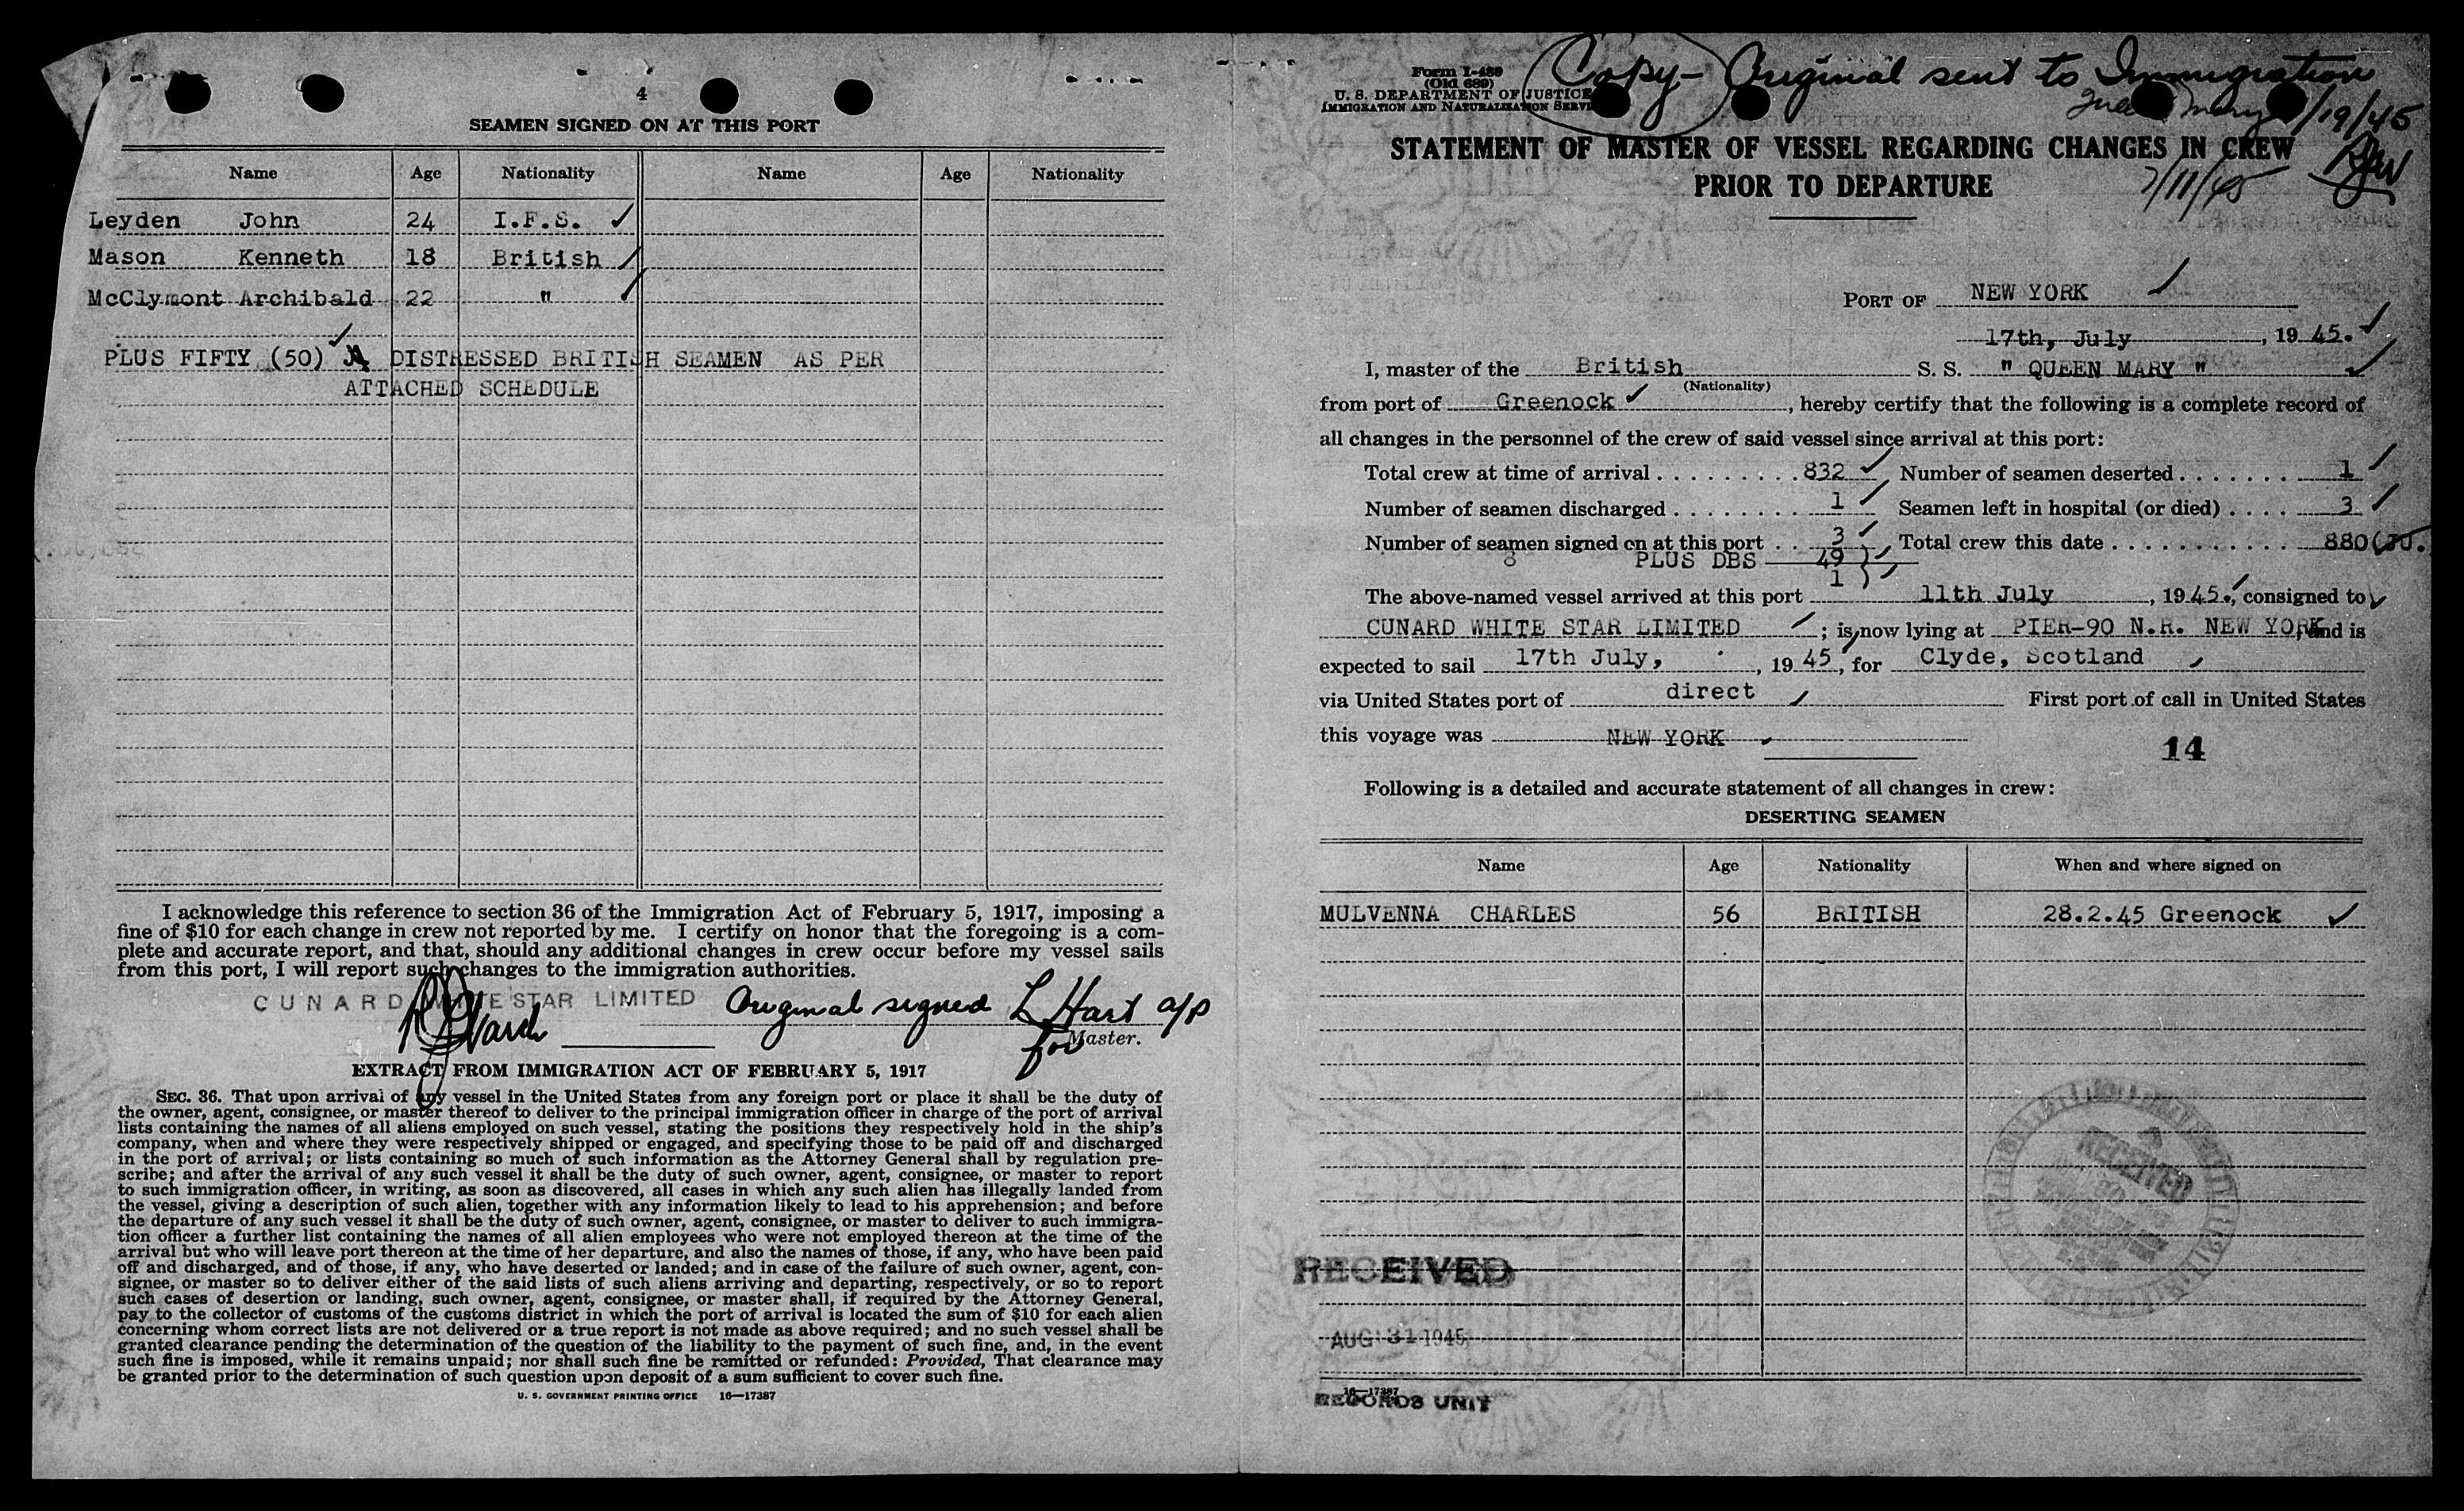 4
SEAMEN SIGNED ON AT THIS PORT
Name Age Nationality Name Age Nationality
Leyden John 24 I.F.S. ✓
Mason Kenneth 18 British ✓
McClymont Archibald 22 " ✓
PLUS FIFTY (50) DISTRESSED BRITISH SEAMEN AS PER
ATTACHED SCHEDULE
I acknowledge this reference to section 36 of the Immigration Act of February 5, 1917, imposing a
fine of $10 for each change in crew not reported by me. I certify on honor that the foregoing is a com-
plete and accurate report, and that, should any additional changes in crew occur before my vessel sails
from this port, I will report such changes to the immigration authorities.
CUNARD WHITE STAR LIMITED Original signed L Hart a/p
for Master.
EXTRACT FROM IMMIGRATION ACT OF FEBRUARY 5, 1917
SEC. 36. That upon arrival of any vessel in the United States from any foreign port or place it shall be the duty of
the owner, agent, consignee, or master thereof to deliver to the principal immigration officer in charge of the port of arrival
lists containing the names of all aliens employed on such vessel, stating the positions they respectively hold in the ship's
company, when and where they were respectively shipped or engaged, and specifying those to be paid off and discharged
in the port of arrival; or lists containing so much of such information as the Attorney General shall by regulation pre-
scribe; and after the arrival of any such vessel it shall be the duty of such owner, agent, consignee, or master to report
to such immigration officer, in writing, as soon as discovered, all cases in which any such alien has illegally landed from
the vessel, giving a description of such alien, together with any information likely to lead to his apprehension; and before
the departure of any such vessel it shall be the duty of such owner, agent, consignee, or master to deliver to such immigra-
tion officer a further list containing the names of all alien employees who were not employed thereon at the time of the
arrival but who will leave port thereon at the time of her departure, and also the names of those, if any, who have been paid
off and discharged, and of those, if any, who have deserted or landed; and in case of the failure of such owner, agent, con-
signee, or master so to deliver either of the said lists of such aliens arriving and departing, respectively, or so to report
such cases of desertion or landing, such owner, agent, consignee, or master shall, if required by the Attorney General,
pay to the collector of customs of the customs district in which the port of arrival is located the sum of $10 for each alien
concerning whom correct lists are not delivered or a true report is not made as above required; and no such vessel shall be
granted clearance pending the determination of the question of the liability to the payment of such fine, and, in the event
such fine is imposed, while it remains unpaid; nor shall such fine be remitted or refunded: Provided, That clearance may
be granted prior to the determination of such question upon deposit of a sum sufficient to cover such fine.
U. S. GOVERNMENT PRINTING OFFICE 16—17387
Form I-489
(Old 689)
U. S. DEPARTMENT OF JUSTICE
IMMIGRATION AND NATURALIZATION SERVI
Copy - Original sent to Immigration
STATEMENT OF MASTER OF VESSEL REGARDING CHANGES IN CREW
PRIOR TO DEPARTURE
7/11/45
PORT OF NEW YORK ✓
17th, July, 1945. ✓
I, master of the British S. S. " QUEEN MARY " ✓
(Nationality)
from port of Greenock ✓, hereby certify that the following is a complete record of
all changes in the personnel of the crew of said vessel since arrival at this port:
Total crew at time of arrival 832 ✓ Number of seamen deserted 1 ✓
Number of seamen discharged 1 ✓ Seamen left in hospital (or died) 3 ✓
Number of seamen signed on at this port 3 ✓ Total crew this date 880
PLUS DBS 49
1
The above-named vessel arrived at this port 11th July, 1945., consigned to
CUNARD WHITE STAR LIMITED ; is now lying at PIER-90 N.R. NEW YORK, and is
expected to sail 17th July, , 1945, for Clyde, Scotland
via United States port of direct First port of call in United States
this voyage was NEW YORK
14
Following is a detailed and accurate statement of all changes in crew:
DESERTING SEAMEN
Name Age Nationality When and where signed on
MULVENNA CHARLES 56 BRITISH 28.2.45 Greenock ✓
RECEIVED
RECEIVED
AUG 31 1945
16—17387
RECORDS UNIT